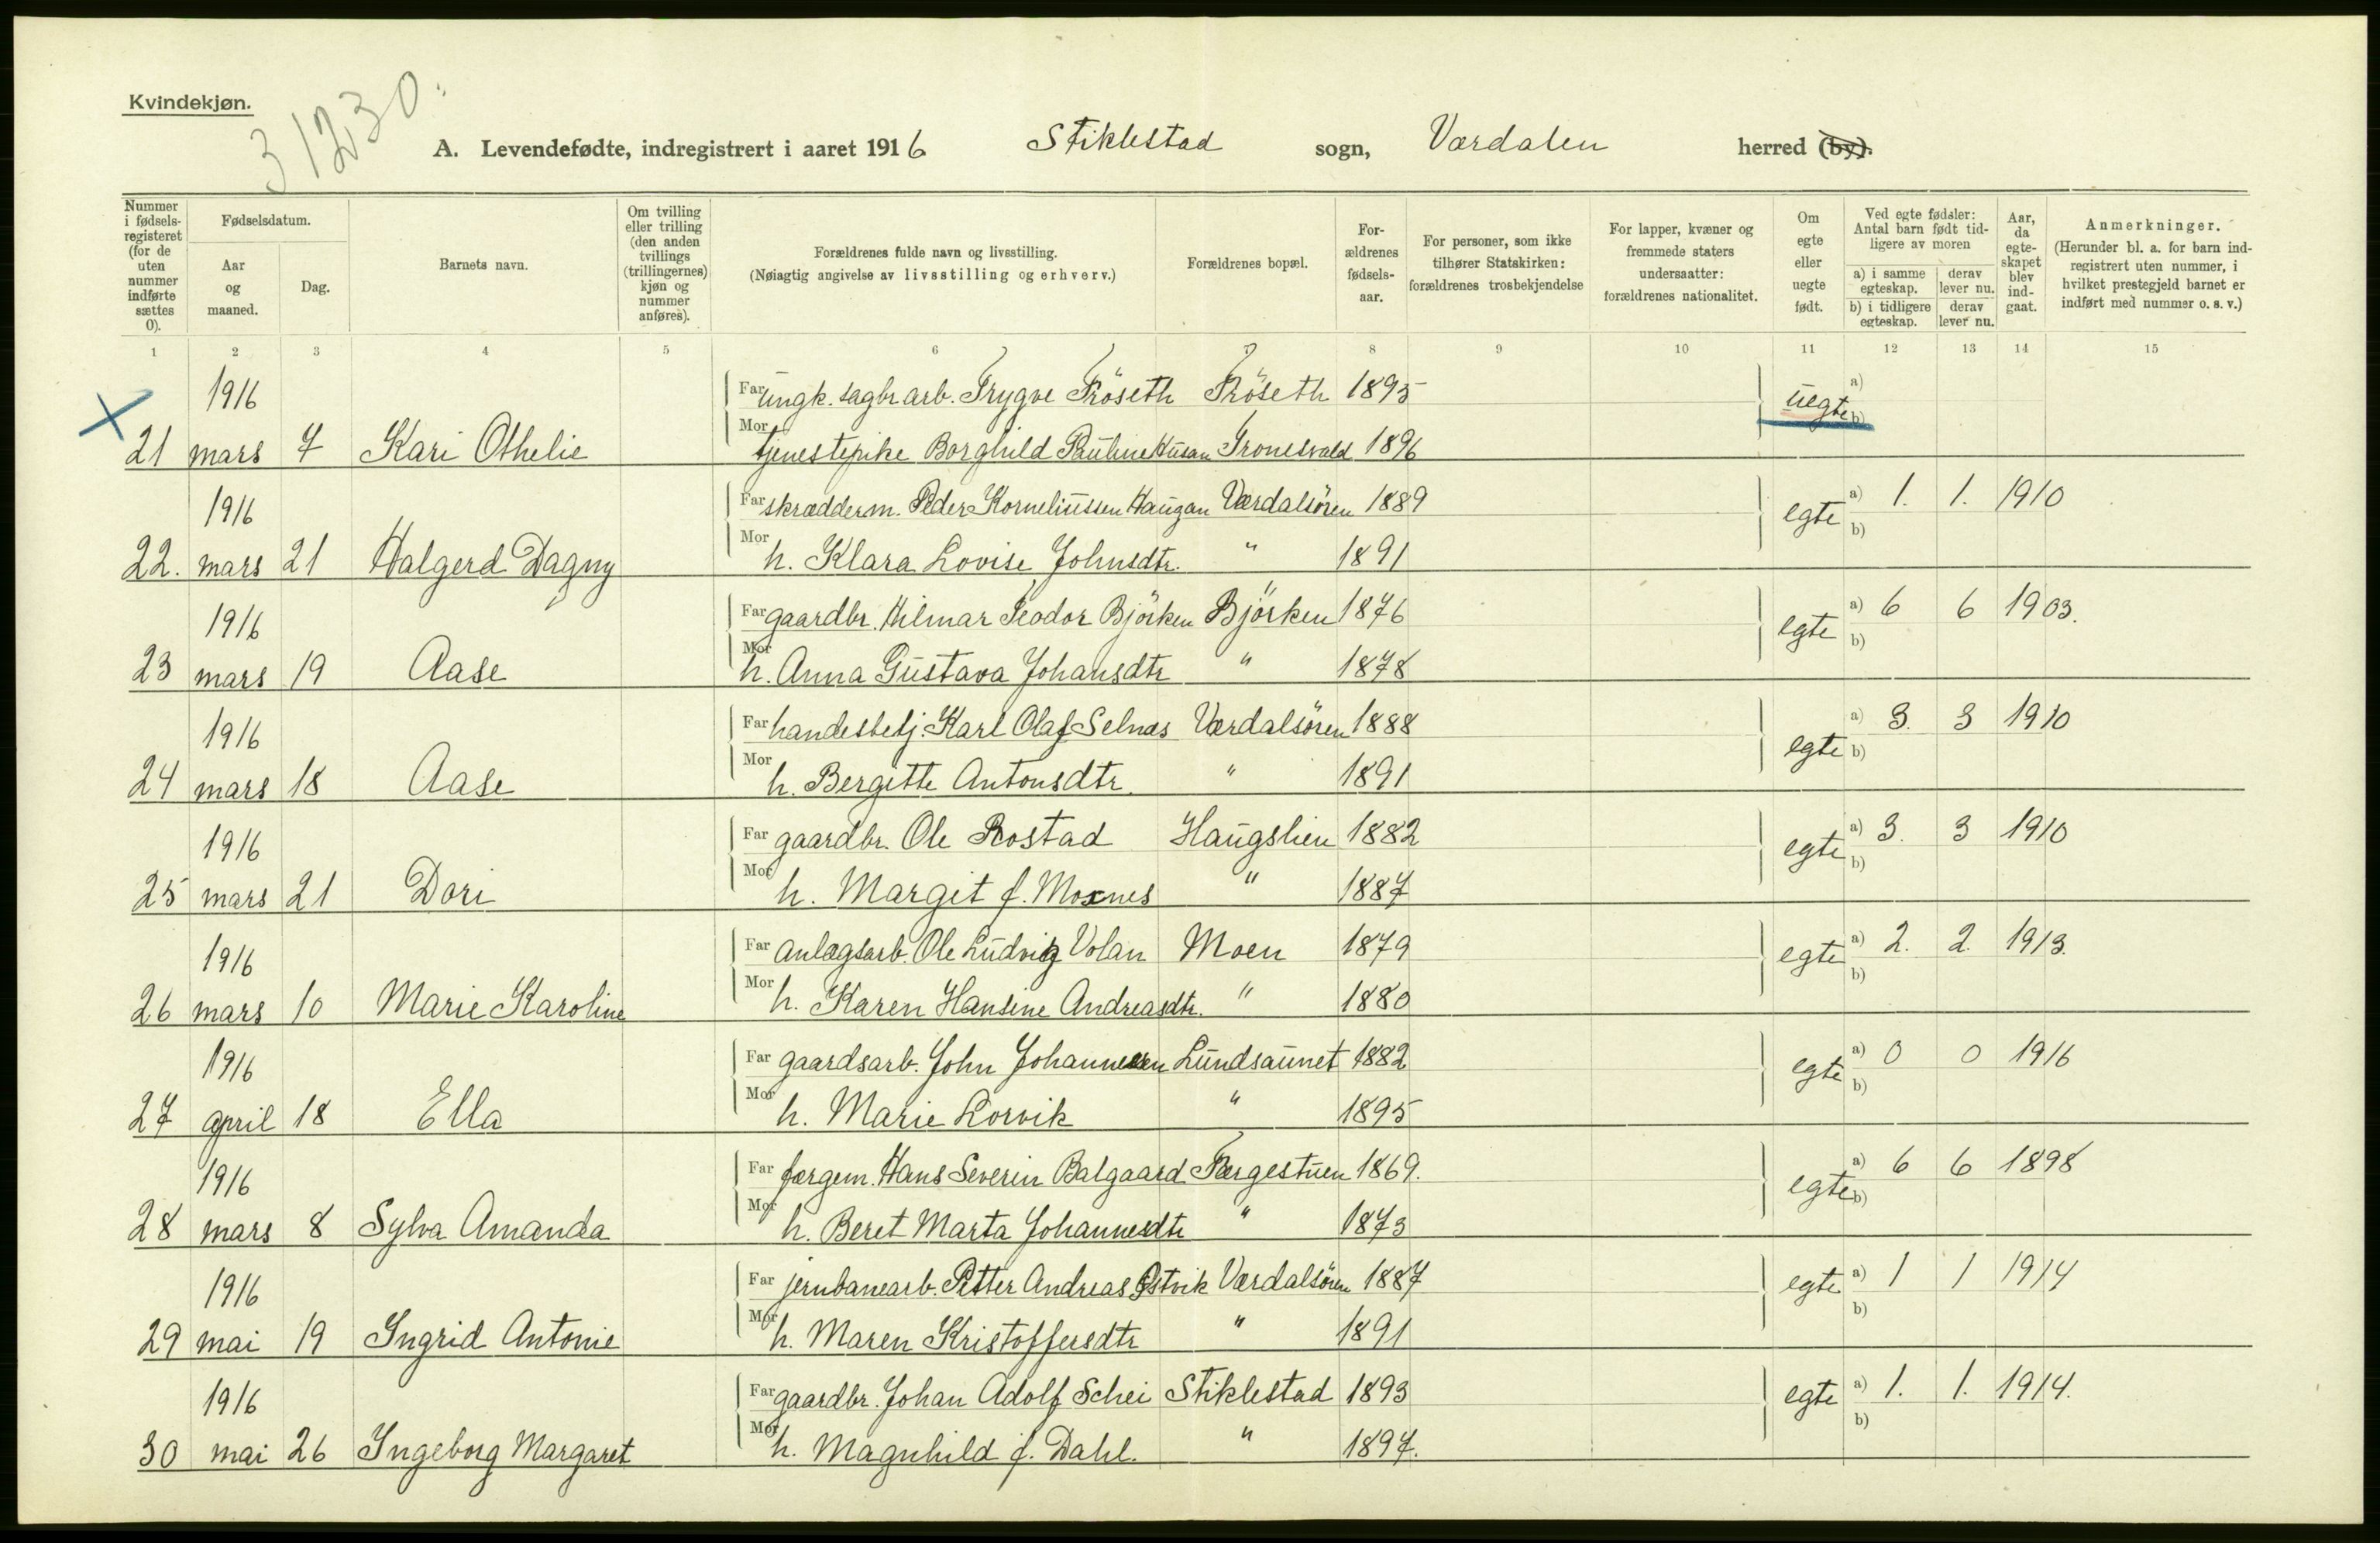 Kvindekjøn.
31230.
A. Levendefødte, indregistrert i aaret 1916 Stiklestad sogn, Værdalen herred (by).
Nummer i fødsels-registeret (for de uten nummer indførte sættes 0).
Fødselsdatum.
Aar og maaned.
Dag.
Barnets navn.
Om tvilling eller trilling (den anden tvillings (trillingernes) kjøn og nummer anføres).
Forældrenes fulde navn og livsstilling.
(Nøiagtig angivelse av livsstilling og erhverv.)
Forældrenes bopæl.
For-ældrenes fødsels-aar.
For personer, som ikke tilhører Statskirken: forældrenes trosbekjendelse
For lapper, kvæner og fremmede staters undersaatter: forældrenes nationalitet.
Om egte eller uegte født.
Ved egte fødsler: Antal barn født tid-ligere av moren
a) i samme egteskap. derav lever nu.
b) i tidligere egteskap. derav lever nu.
Aar, da egte-skapet blev ind-gaat.
Anmerkninger.
(Herunder bl. a. for barn ind-registrert uten nummer, i hvilket prestegjeld barnet er indført med nummer o. s. v.)
1 2 3 4 5 6 7 8 9 10 11 12 13 14 15
1916 Far ungk. sagbr.arb. Trygve Fröseth Fröseth 1895 uegte a)
21 mars 7 Kari Othelie Mor tjenestepike Borghild Pauline Husan Tronesvald 1896 b)
1916 Far skrædderm. Peder Korneliussen Haugan Værdalsören 1889 egte a) 1. 1. 1910
22. mars 21 Halgerd Dagny Mor h. Klara Lovise Johnsdtr. " 1891 b)
1916 Far gaardbr. Hilmar Teodor Björken Björken 1876 egte a) 6 6 1903.
23 mars 19 Aase Mor h. Anna Gustava Johansdtr " 1878 b)
1916 Far handesbetj. Karl Olaf Selnæs Værdalsören 1888 egte a) 3. 3 1910
24 mars 18 Aase Mor h. Bergitte Antonsdtr. " 1891 b)
1916 Far gaardbr. Ole Rostad Haugslien 1882 egte a) 3. 3 1910
25 mars 21 Dori Mor h. Margit f. Moxnes " 1887 b)
1916 Far anlægsarb. Ole Ludvig Volan Moen 1879 egte a) 2. 2. 1913.
26 mars 10 Marie Karoline Mor h. Karen Hansine Andreasdtr. " 1880 b)
1916 Far gaardsarb. John Johannessen Lundsaunet 1882 egte a) 0 0 1916
27 april 18 Ella Mor h. Marie Lorvik " 1895 b)
1916 Far færgem. Hans Severin Balgaard Færgestuen 1869. egte a) 6 6 1898
28 mars 8 Sylva Amanda Mor h. Beret Marta Johannesdtr " 1873 b)
1916 Far jernbanearb. Petter Andreas Östvik Værdalsören 1887 egte a) 1 1 1914
29 mai 19 Ingrid Antonie Mor h. Maren Kristoffersdtr " 1891 b)
1916 Far gaardbr. Johan Adolf Schei Stiklestad 1893 egte a) 1. 1. 1914.
30 mai 26 Ingeborg Margaret Mor h. Magnhild f. Dahl. " 1897. b)